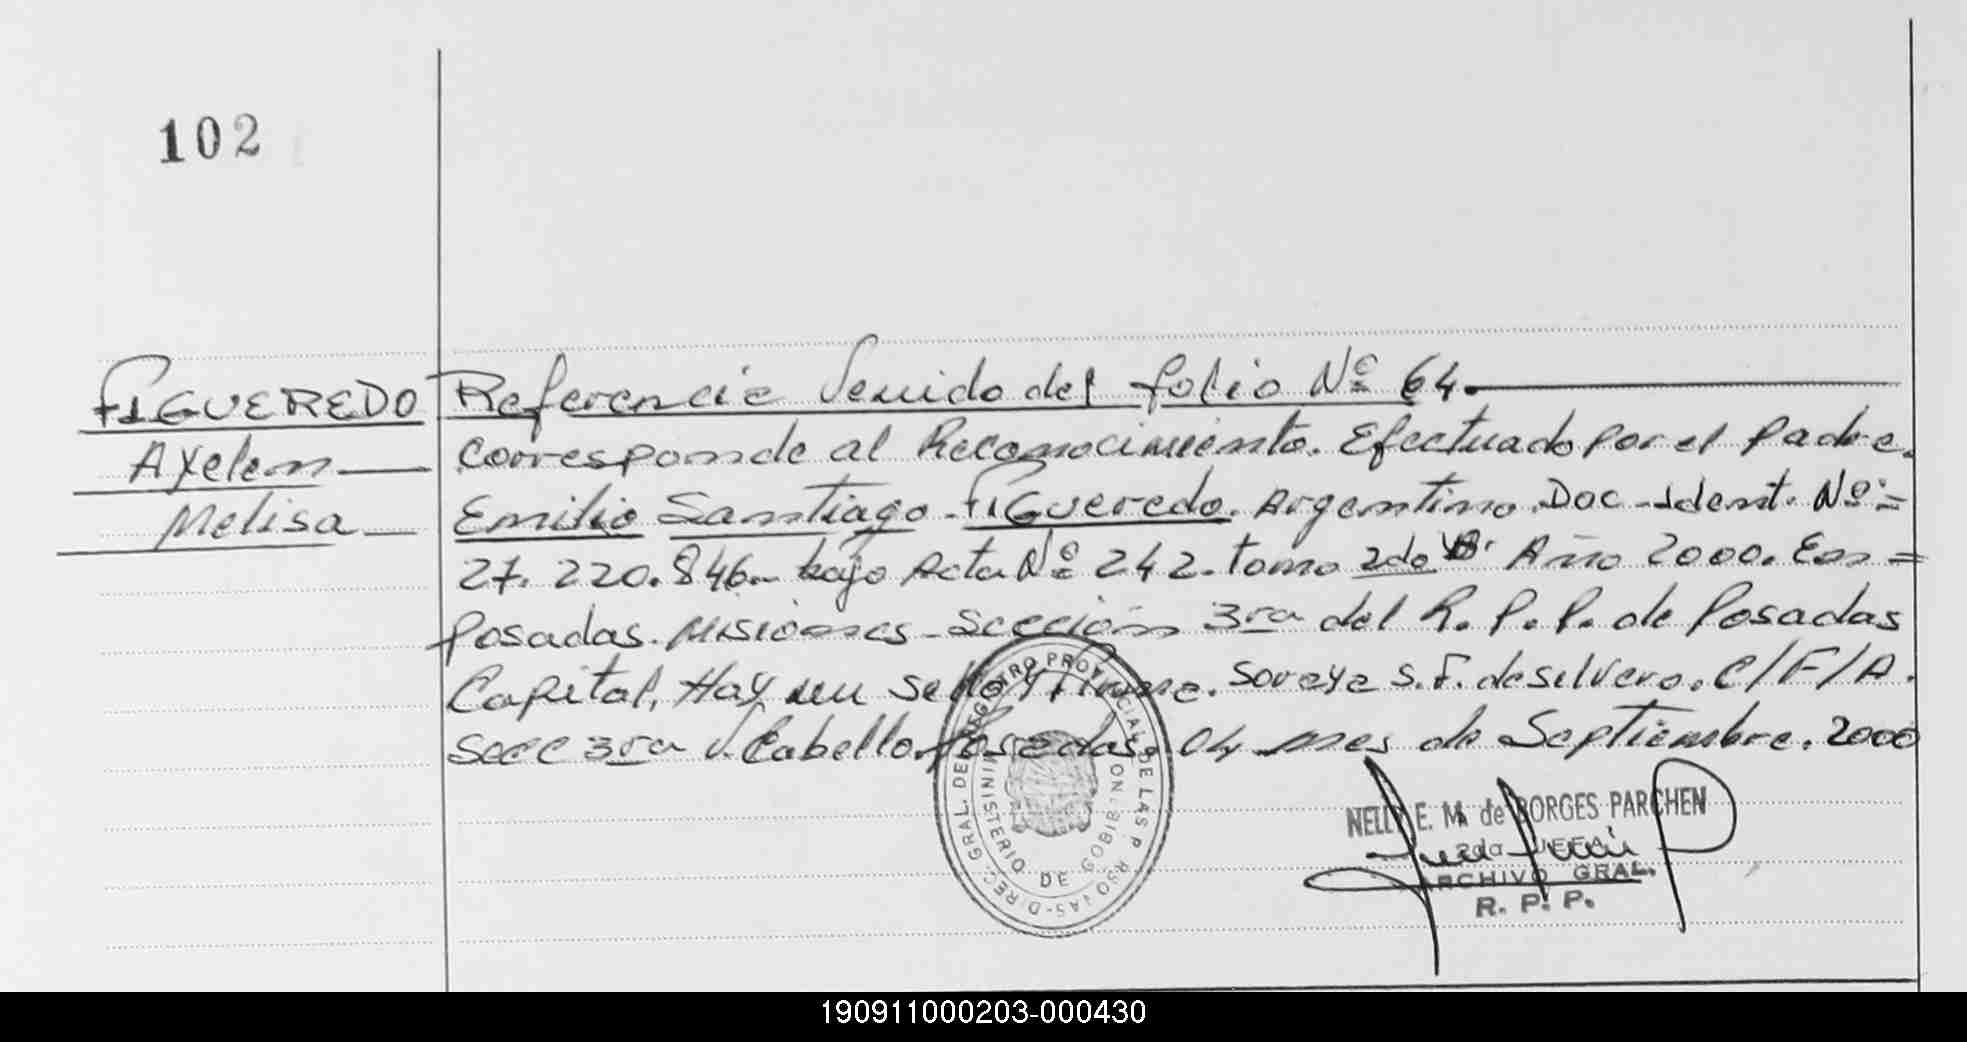 102
FIGUEREDO Referencia Venido del folio Nº 64.
Axelen Corresponde al Reconocimiento. Efectuado por el padre.
Melisa Emilio Santiago Figueredo. Argentino. Doc. Ident. Nº =
27.220.846. bajo Acta Nº 242. tomo 2do Año 2000. En =
Posadas. Misiones. Sección 3ra del R.P.P. de Posadas
Capital. Hay un sello y firma. Soraya S.F. de Silvero. C/F/A.
Secc 3ra V. Cabello. Posadas. 04 mes de Septiembre. 2000
DIREC. GRAL. DEL REGISTRO PROVINCIAL DE LAS PERSONAS
MINISTERIO DE GOBIERNO
NELLY E. M. de BORGES PARCHEN
2da JEFA
ARCHIVO GRAL.
R. P. P.
190911000203-000430